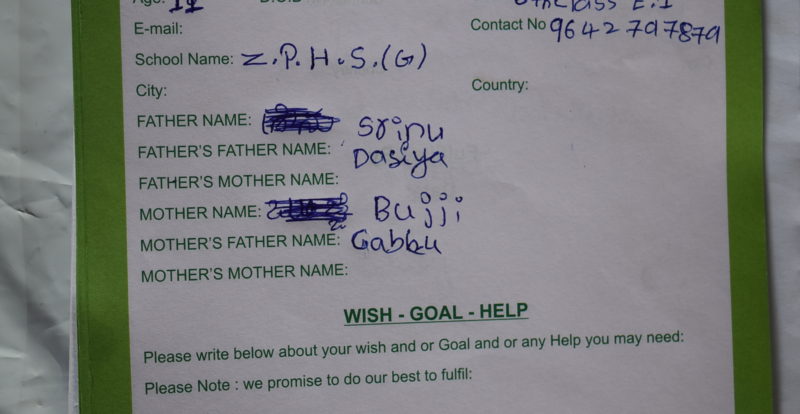 Age: 11
E-mail:
Contact No 9642797879
School Name: Z.P.H.S.(G)
City:
Country:
FATHER NAME: Srinu
FATHER'S FATHER NAME: Dasiya
FATHER'S MOTHER NAME:
MOTHER NAME: Bujji
MOTHER'S FATHER NAME: Gabbu
MOTHER'S MOTHER NAME:
WISH - GOAL - HELP
Please write below about your wish and or Goal and or any Help you may need:
Please Note : we promise to do our best to fulfil: